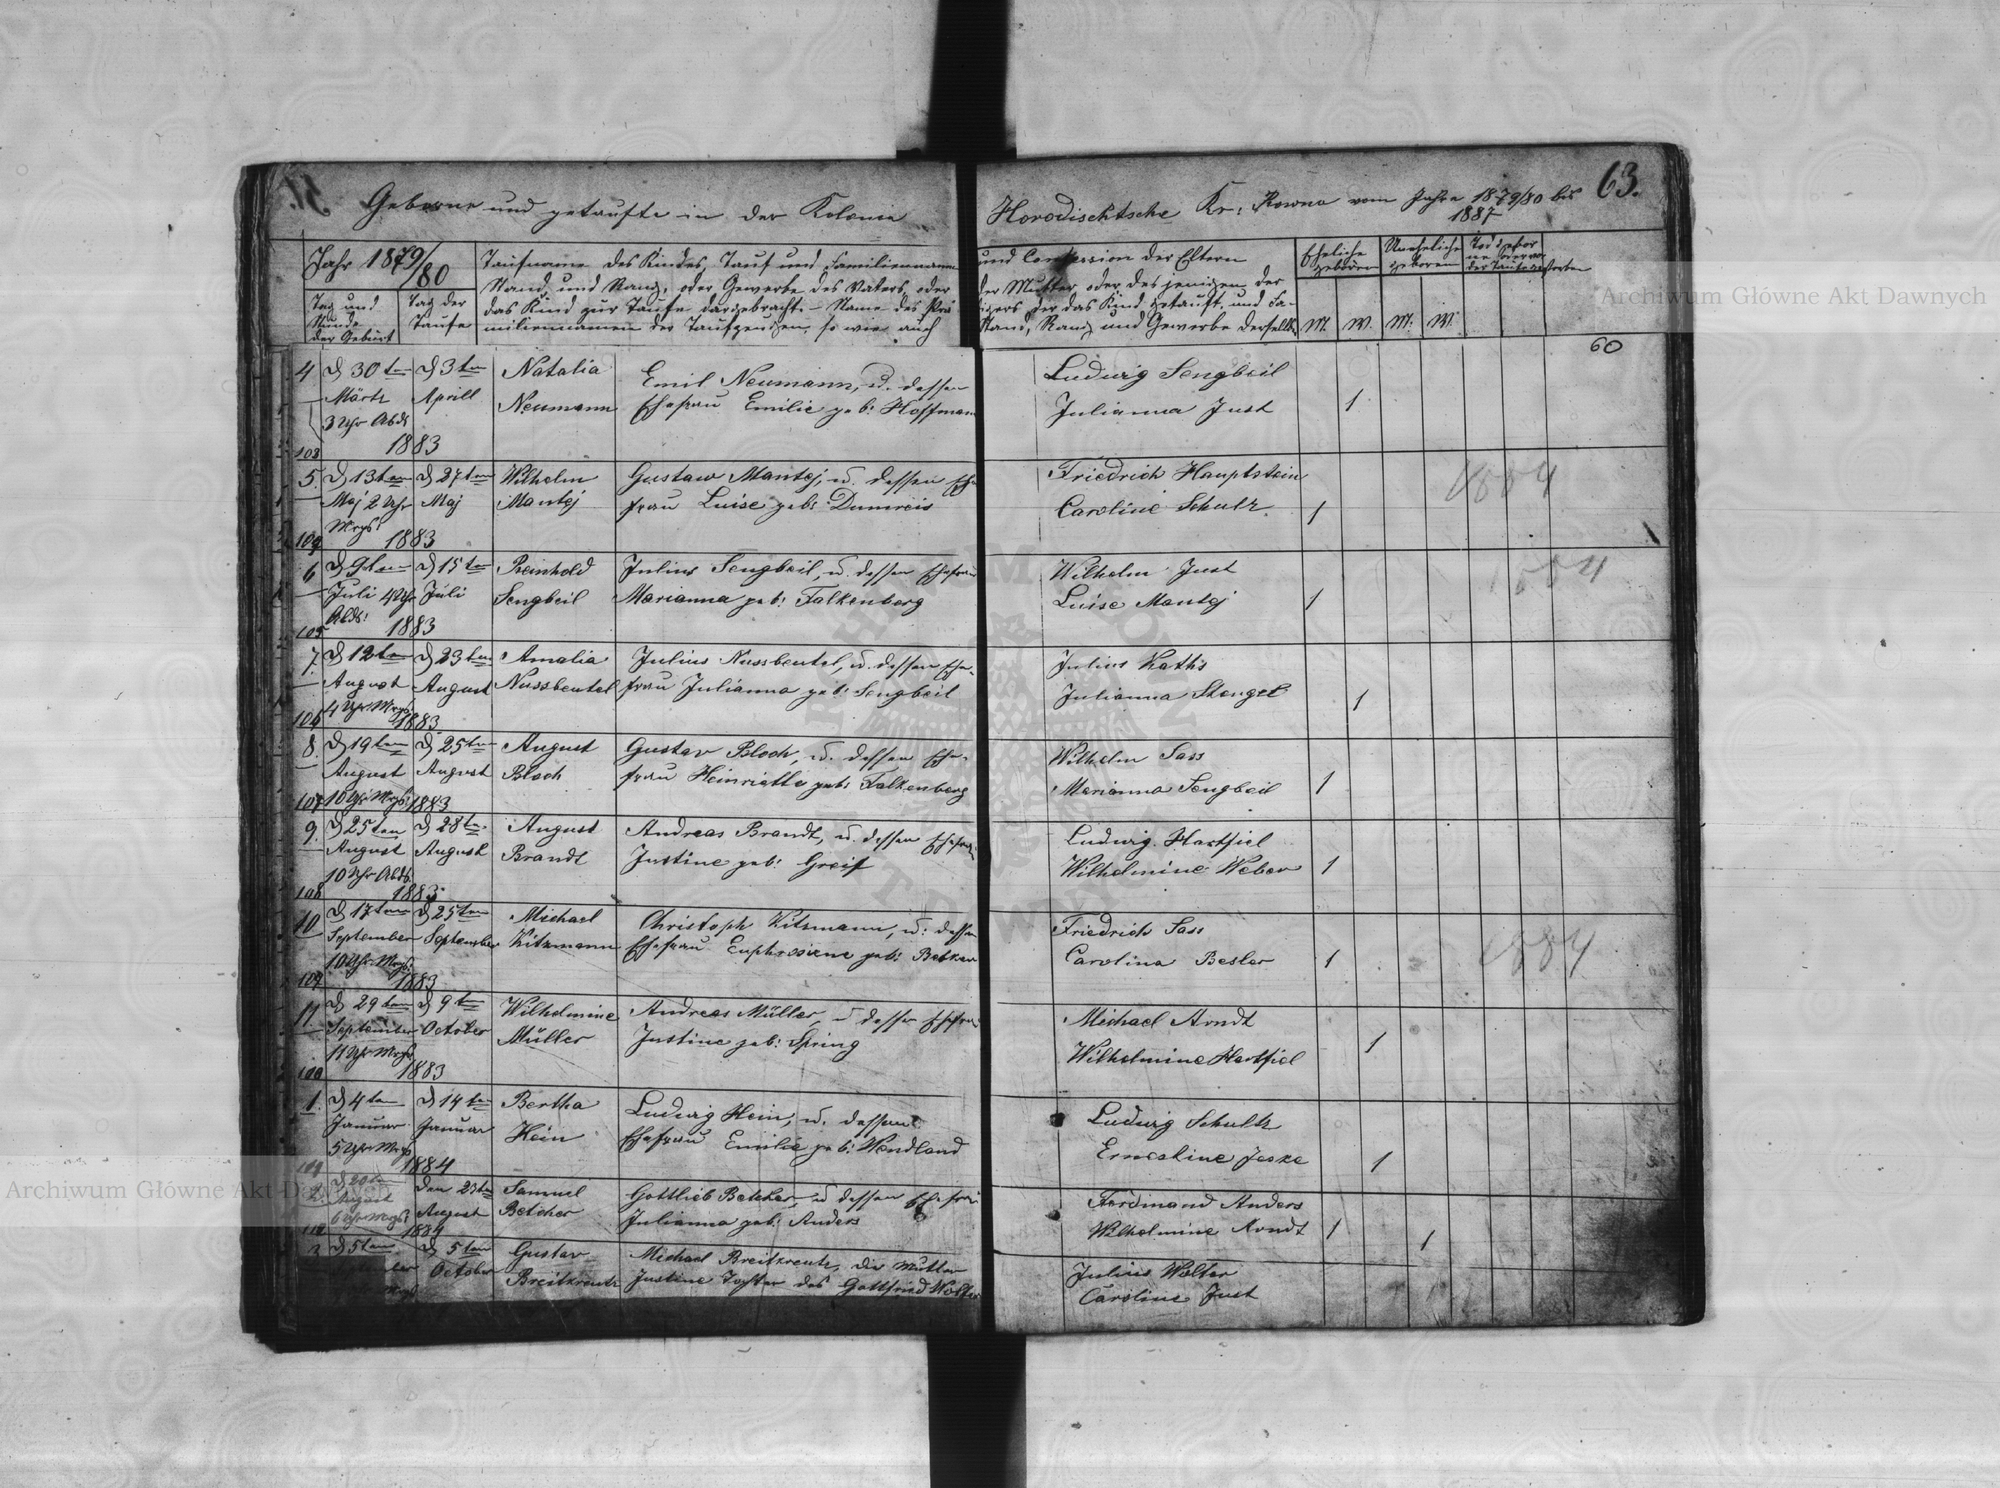 63.
Geborne und getaufte in der Kolonie Horodischtsche Kr: Rowno vom Jahre 1879/80 bis
1887
Jahr 1879/80
Tag und Stunde der Geburt
Tag der Taufe
Taufname des Kindes, Tauf und Familienname und Confession der Eltern
Stand und Rang, oder Gewerbe des Vaters, oder der Mutter oder des jenigen der
das Kind zur Taufe dargebracht. – Name des Predigers der das Kind getauft, und Fa-
miliennamen der Taufzeugen, so wie auch Stand, Rang und Gewerbe derselb.
Eheliche geboren
Unehrliche geboren
M. W. M. W.
60
4 d 30ten d 3ten Natalia Emil Neumann, u. dessen Ludwig Sengbeil
Märtz Aprill Neumann Ehefrau Emilie geb: Hoffmann Julianna Just 1
3 Uhr Abds
103 1883
5. d 13ten d 27ten Wilhelm Gustaw Mantej, u. dessen Ehe Friedrich Hauptstein 1884
Maj 2 Uhr Maj Mantej frau Luise geb: Dumreis Caroline Schulz 1
Mrgs:
104 1883
6 d 9ten d 15ten Reinhold Julius Sengbeil, u. dessen Ehefrau Wilhelm Just 1884
Juli 4 Uhr Juli Sengbeil Marianna geb: Falkenberg Luise Mantej 1
Abds:
105 1883
7. d 12ten d 23ten Amalia Julius Nussbeutel, u. dessen Ehe- Julius Raths
August August Nussbeutel frau Julianna geb: Sengbeil Julianna Stengel 1
4 Uhr Mrgs
106 1883
8. d 19ten d 25ten August Gustav Bloch, u. dessen Ehe- Wilhelm Sass
August August Bloch frau Heinriette geb: Falkenberg Marianna Sengbeil 1
107 10 Uhr Mrgs 1883
9. d 25ten d 28ten August Andreas Brandt, u. dessen Ehefrau Ludwig Hartfiel
August August Brandt Justine geb: Greif Wilhelmine Weber 1
10 Uhr Abds
108 1883
10 d 17ten d 25ten Michael Christoph Kitzmann, u: dessen Friedrich Sass 1884
September September Kitzmann Ehefrau Euphrosiene geb: Carolina Besler 1
10 Uhr Mrgs
109 1883
11. d 29ten d 9ten Wilhelmine Andreas Müller, u dessen Ehefrau Michael Arndt
September October Müller Justine geb: Spring Wilhelmine Hartfiel 1
11 Uhr Mrgs
1883
1. d 4ten d 14ten Bertha Ludwig Hein, u. dessen Ludwig Schultz
Januar Januar Hein Ehefrau Emilie geb: Wendland Ernestine Jeske 1
5 Uhr Mrgs
1884
2. d 20ten den 23ten Samuel Gottlieb Betcher, u dessen Ehefrau Ferdinand Anders
August August Betcher Julianna geb: Anders Wilhelmine Arndt 1
6 Uhr Mrgs
110 1884
3 d 5ten d 5ten Gustav Michael Breitkreutz, die Mutter Julius Wolter 1
October Breitkreutz Justine Tochter des Gottfried Wolter Caroline Just
Archiwum Główne Akt Dawnych
Archiwum Główne Akt Dawnych